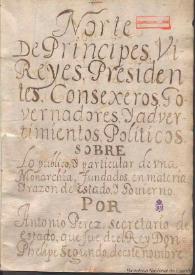 Norte
De Principes, Vi
Reyes, Presiden
tes, Consexeros, Go
vernadores, Y adver
timientos, Politicos
SOBRE
Lo publico, Y particular de vna
Monarchia, Fundados en materia
de razon de Estado, Y Govierno.
POR
Antonio Perez, secretario de
Estado, que fue del Rey Don
Phelipe Segundo de este nombre